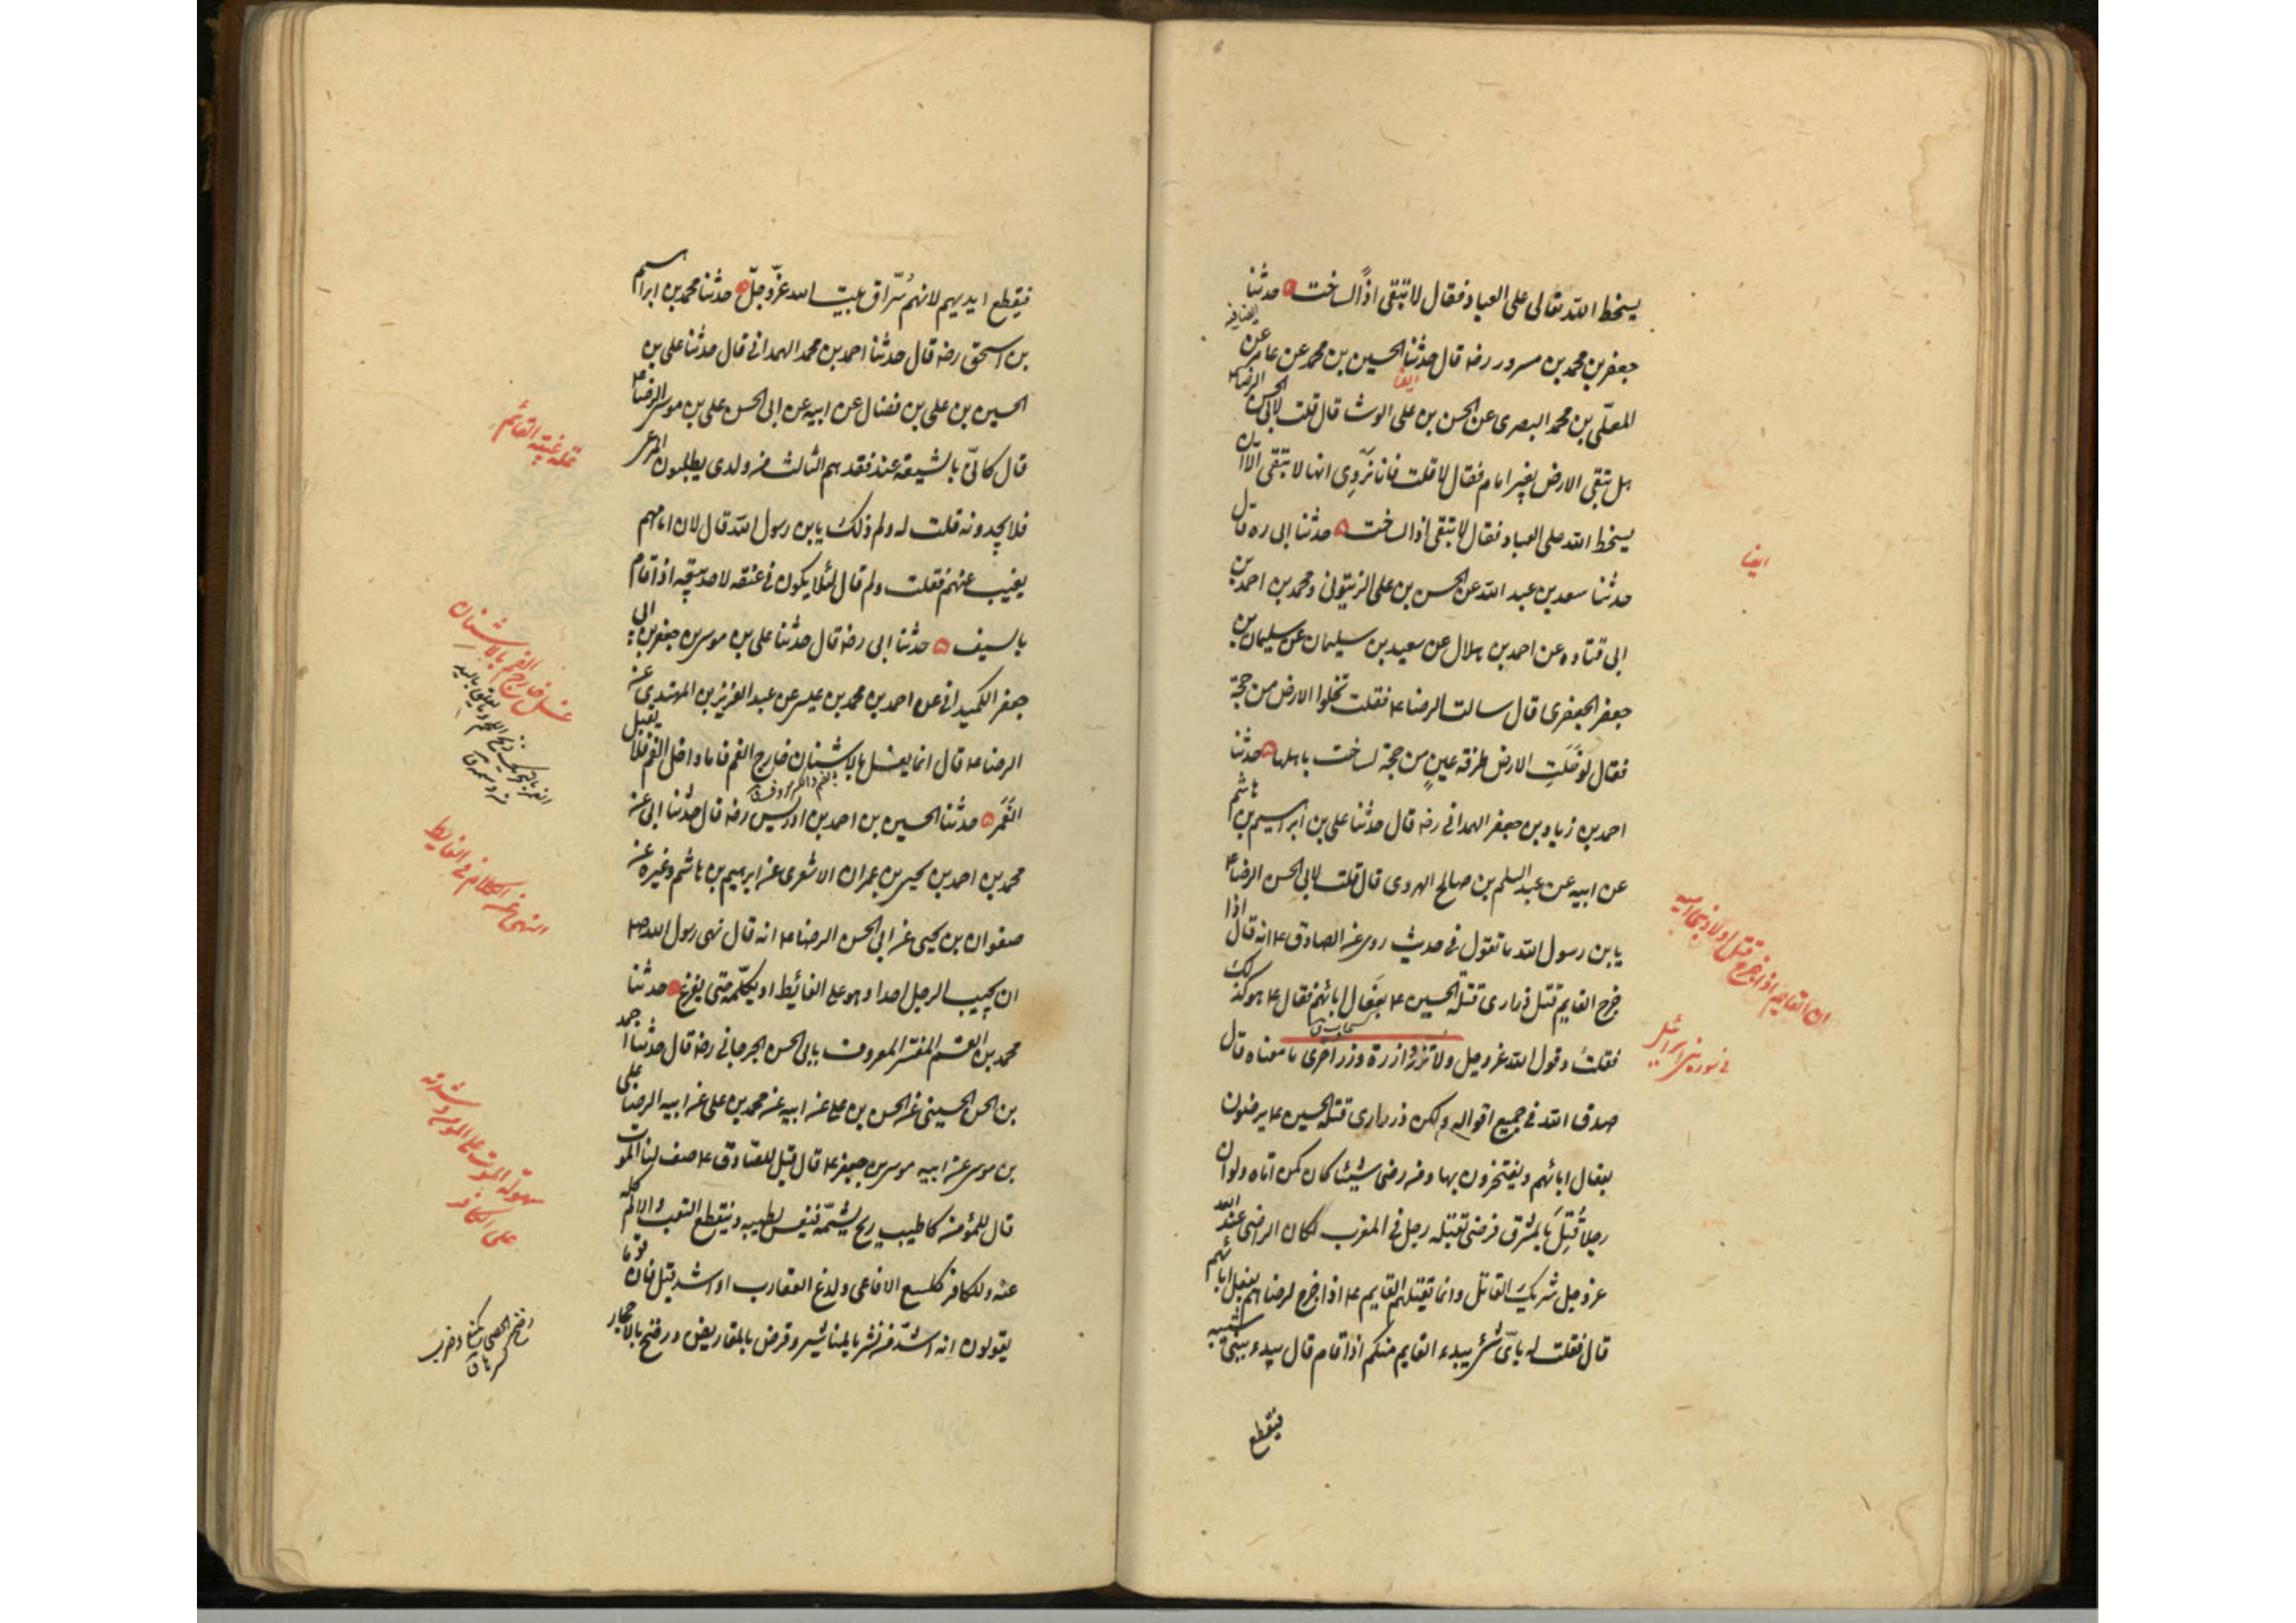 يسخط الله تعالى على العباد فقال لا تبقى اذًا لساخت حدثنا
جعفر بن محمد بن مسرور رضه قال حدثنا الحسين بن محمد عن عامر عن
ايضا
المعلّى بن محمد البصرى عن الحسن بن على الوشا قال قلت لابى الحسن الرضا ع
هل تبقى الارض بغير امام فقال لا قلت فانا نَرْوِى انها لا تبقى الا ان
يسخط الله على العباد فقال لا تبقى اذا لساخت حدثنا ابى ره قال
ايضا
حدثنا سعد بن عبد الله عن الحسن بن على الزيتونى ومحمد بن احمد بن
ابى قتاده عن احمد بن هلال عن سعيد بن سليمان عن سليمان بن
جعفر الجعفرى قال سالت الرضا ع فقلت تخلوا الارض من حجّة
فقال لو خَلَتِ الارض طرفة عينٍ من حجة لساخت باهلها حدثنا
احمد بن زياد بن جعفر الهمدانى رضه قال حدثنا على بن ابراهيم بن هاشم
عن ابيه عن عبد السلم بن صالح الهروى قال قلت لابى الحسن الرضا ع
يا بن رسول الله ما تقول فى حديث روى عن الصادق ع انه قال اذا
ان القايم اذا خرج قتل اولاد بنى اميه
خرج القايم قتل ذرارى قتلة الحسين ع بفعال ابائهم فقال ع هو كذلك
فقلت وقول الله عز وجل ولا تزر وازرة وزر اخرى ما معناه قال
فى سوره بنى اسرائيل
صدق الله فى جميع اقواله ولكن ذرارى قتلة الحسين ع يرضون
بفعال ابائهم ويفتخرون بها ومن رضى شيئا كان كمن اتاه ولو ان
رجلا قُتِلَ بالمشرق فرضى بقتله رجل فى المغرب لكان الراضى عند الله
عز وجل شريك القاتل وانما يقتلهم القايم ع اذا خرج لرضاهم بفعل ابائهم
قال فقلت له باىّ شئ يبدء القايم منكم اذا قام قال يبدء ببنى شيبه
فيقطع
فيقطع ايديهم لانهم سُرّاق بيت الله عزّ وجلّ حدثنا محمد بن ابراهيم
بن اسحق رضه قال حدثنا احمد بن محمد الهمدانى قال حدثنا على بن
الحسين بن على بن فضال عن ابيه عن ابى الحسن على بن موسى الرضا ع
علة غيبة القائم
قال كانّى بالشيعة عند فقدهم الثالث من ولدى يطلبون المرعى
فلا يجدونه قلت له ولم ذلك يا بن رسول الله قال لان امامهم
يغيب عنهم فقلت ولم قال لئلا يكون فى عنقه لاحد بيعة اذا قام
بالسيف حدثنا ابى رضه قال حدثنا على بن موسى بن جعفر بن ابى
غسل خارج الفم بالاشنان
جعفر الكميدانى عن احمد بن محمد بن عيسى عن عبد العزيز بن المهتدى عن
الرضا ع قال انما يغسل بالاشنان خارج الفم فاما داخل الفم فلا يقبل
الغَمَر حدثنا الحسين بن احمد بن ادريس رضه قال حدثنا ابى عن
النهى عن الكلام فى الغايط
محمد بن احمد بن يحيى بن عمران الاشعرى عن ابرهيم بن هاشم وغيره عن
صفوان بن يحيى عن ابى الحسن الرضا ع انه قال نهى رسول الله ص
ان يجيب الرجل احدا وهو على الغائط او يكلّمه حتى يفرغ حدثنا
محمد بن القسم المفسّر المعروف بابى الحسن الجرجانى رضه قال حدثنا احمد
بن الحسن الحسينى عن الحسن بن على عن ابيه عن محمد بن على عن ابيه الرضا على
سهولة الموت على المومن وشدته
على الكافر
بن موسى عن ابيه موسى بن جعفر ع قال قيل للصادق ع صف لنا الموت
قال للمؤمن كاطيب ريح يشمّه فينعس لطيبه وينقطع التعب والالم كله
عنه وللكافر كلسع الافاعى ولدغ العقارب او اشد قيل فان قوما
يقولون انه اشدّ من نشر بالمناشير وقرض بالمقاريض ورضخ بالاحجار